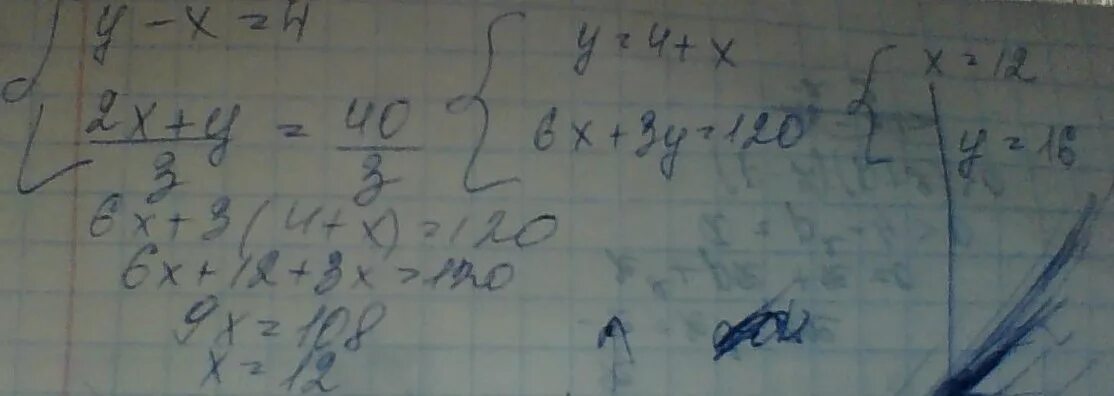 y - x = 4
2x + y / 3 = 40 / 3
y = 4 + x
6x + 3y = 120
x = 12
y = 16
6x + 3(4 + x) = 120
6x + 12 + 3x = 120
9x = 108
x = 12